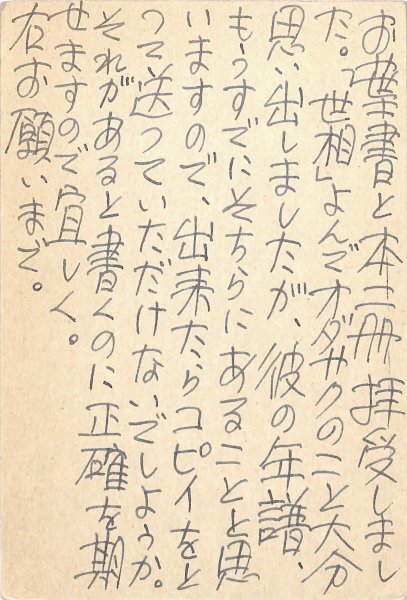 お葉書と本二册拝受しまし
た。「世相」よんでオダサクのこと大分
思い出しましたが、彼の年譜、
もうすでにそちらにあることと思
いますので、出来たらコピイをと
って送っていただけないでしょうか。
それがあると書くのに正確を期
せますので宜しく。
右お願いまで。